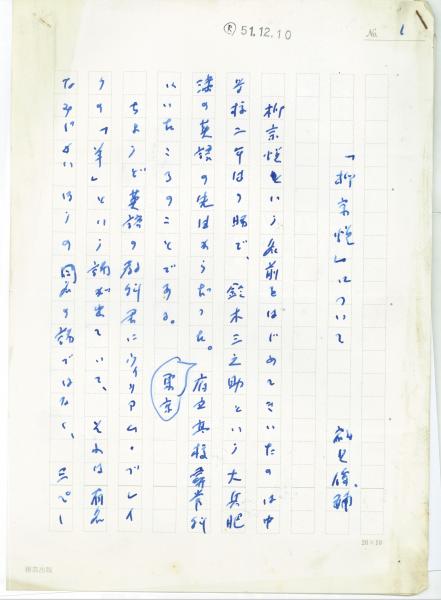 51.12.10
No. 1
「柳宗悦」について
鶴見俊輔
柳宗悦という名前をはじめてきいたのは中
学校二年生の時で、鈴木三之助という大兵肥
満の英語の先生からだった。府立高校尋常科
東京
にいたころのことである。
ちょうど英語の教科書にウィリアム・ブレイ
クの「羊」という詩が出ていて、それは有名
なみじかいほうの同名の詩ではなく、三ペー
20×10